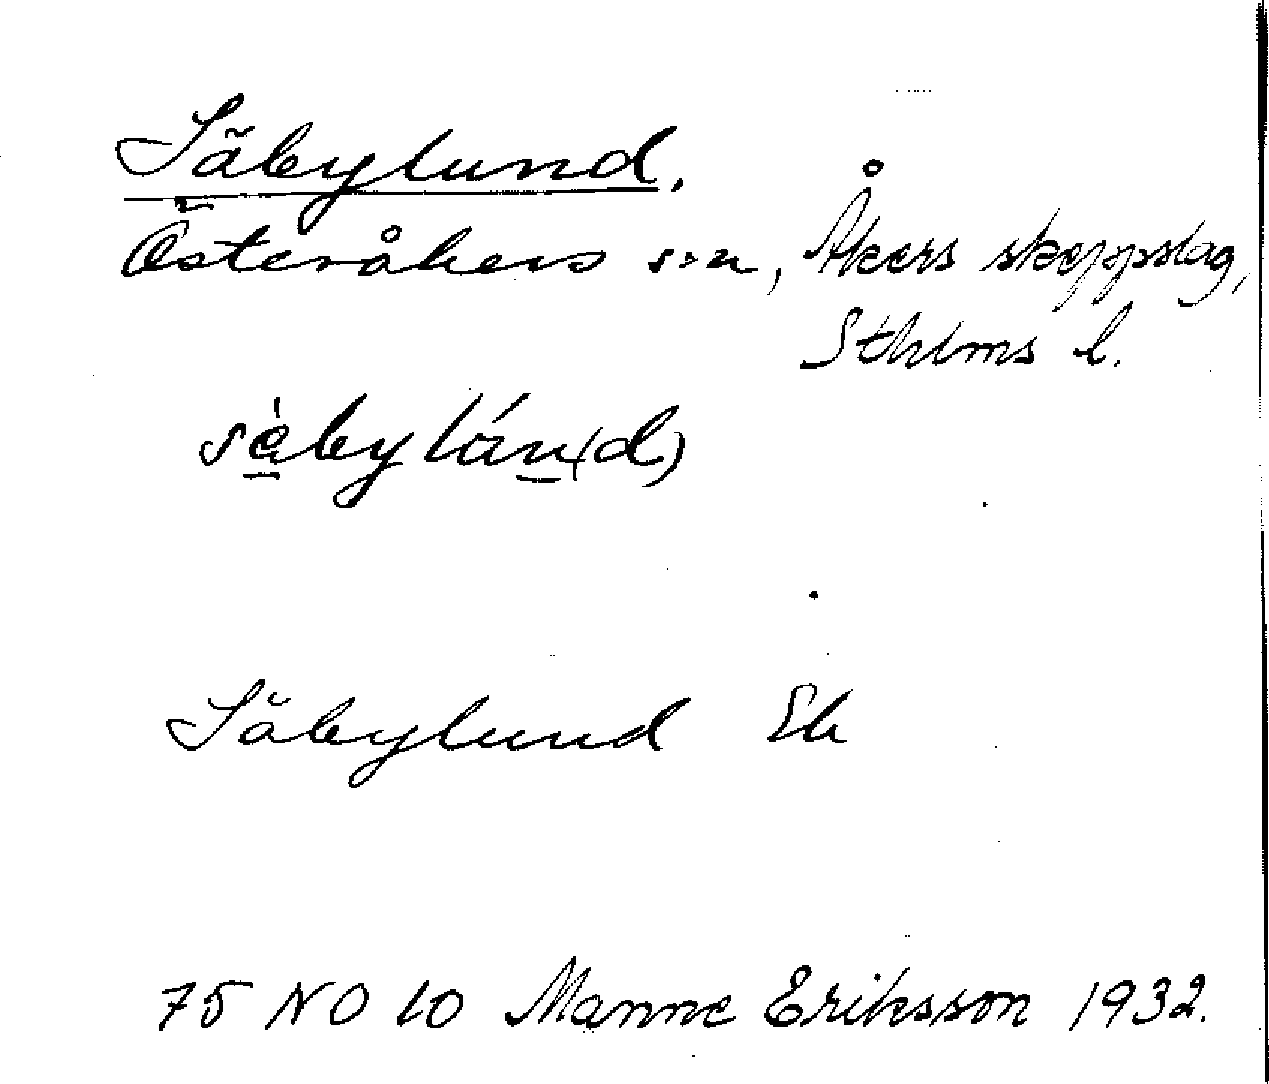 Säbylund.
Österåkers s:n, Åkers skeppslag,
Sthlms l.
sàbylán(d)
Säbylund Ek
75 NO 10 Manne Eriksson 1932.